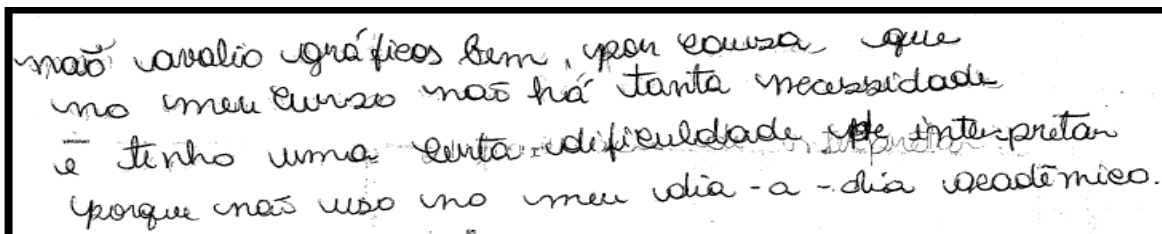 não avalio gráficos bem, por causa que
no meu curso não há tanta necessidade
e tenho uma certa dificuldade de interpretar
porque não uso no meu dia-a-dia acadêmico.